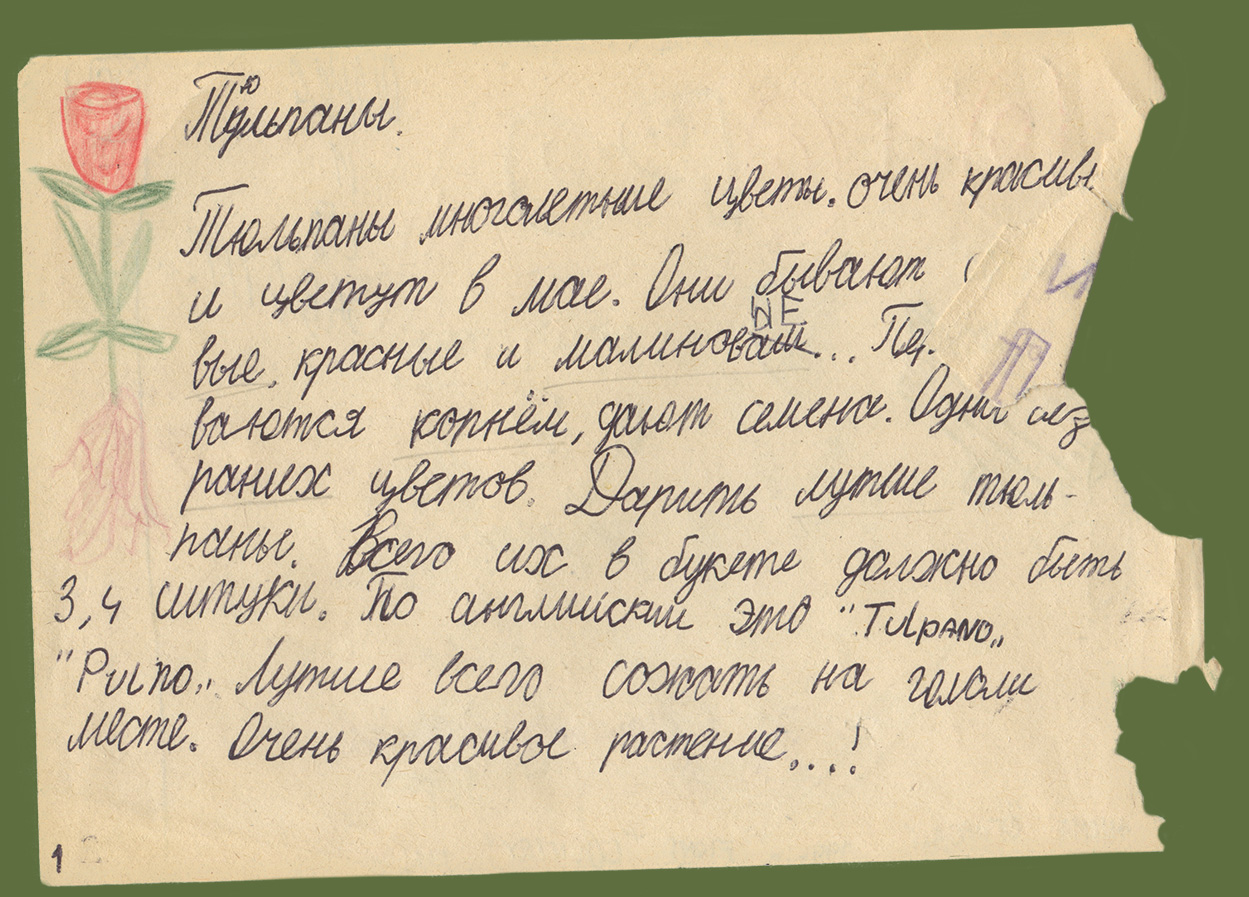 Тюльпаны.
Тюльпаны многолетние цветы. очень красивы
и цветут в мае. Они бывают
вые, красные и малиноваи NE... Пер.
ваются корнём, дают семена. Одни из
раних цветов. Дарить лутше тюль-
паны. Всего их в букете должно быть
3, 4 штуки. По английский это "Tulpano„
"Pulno„ Лутше всего сожать на голом
месте. Очень красивое растение...!
1